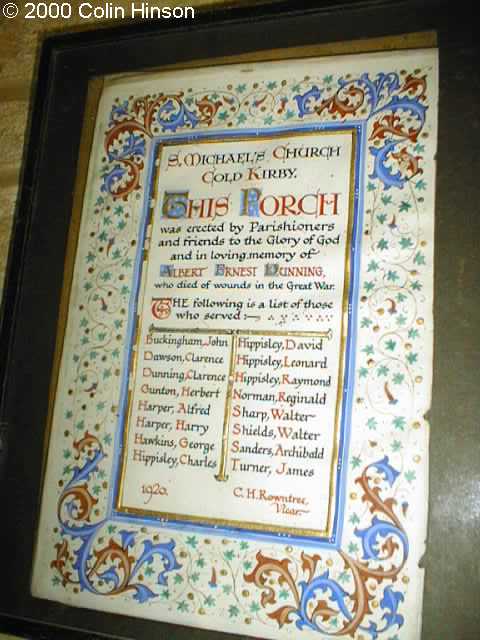 © 2000 Colin Hinson
S. MICHAEL'S CHURCH
COLD KIRBY.
THIS PORCH
was erected by Parishioners
and friends to the Glory of God
and in loving memory of
ALBERT ERNEST DUNNING,
who died of wounds in the Great War.
THE following is a list of those
who served :—
Buckingham, John
Dawson, Clarence
Dunning, Clarence
Gunton, Herbert
Harper, Alfred
Harper, Harry
Hawkins, George
Hippisley, Charles
Hippisley, David
Hippisley, Leonard
Hippisley, Raymond
Norman, Reginald
Sharp, Walter
Shields, Walter
Sanders, Archibald
Turner, James
1920.
C. H. Rowntree,
Vicar.